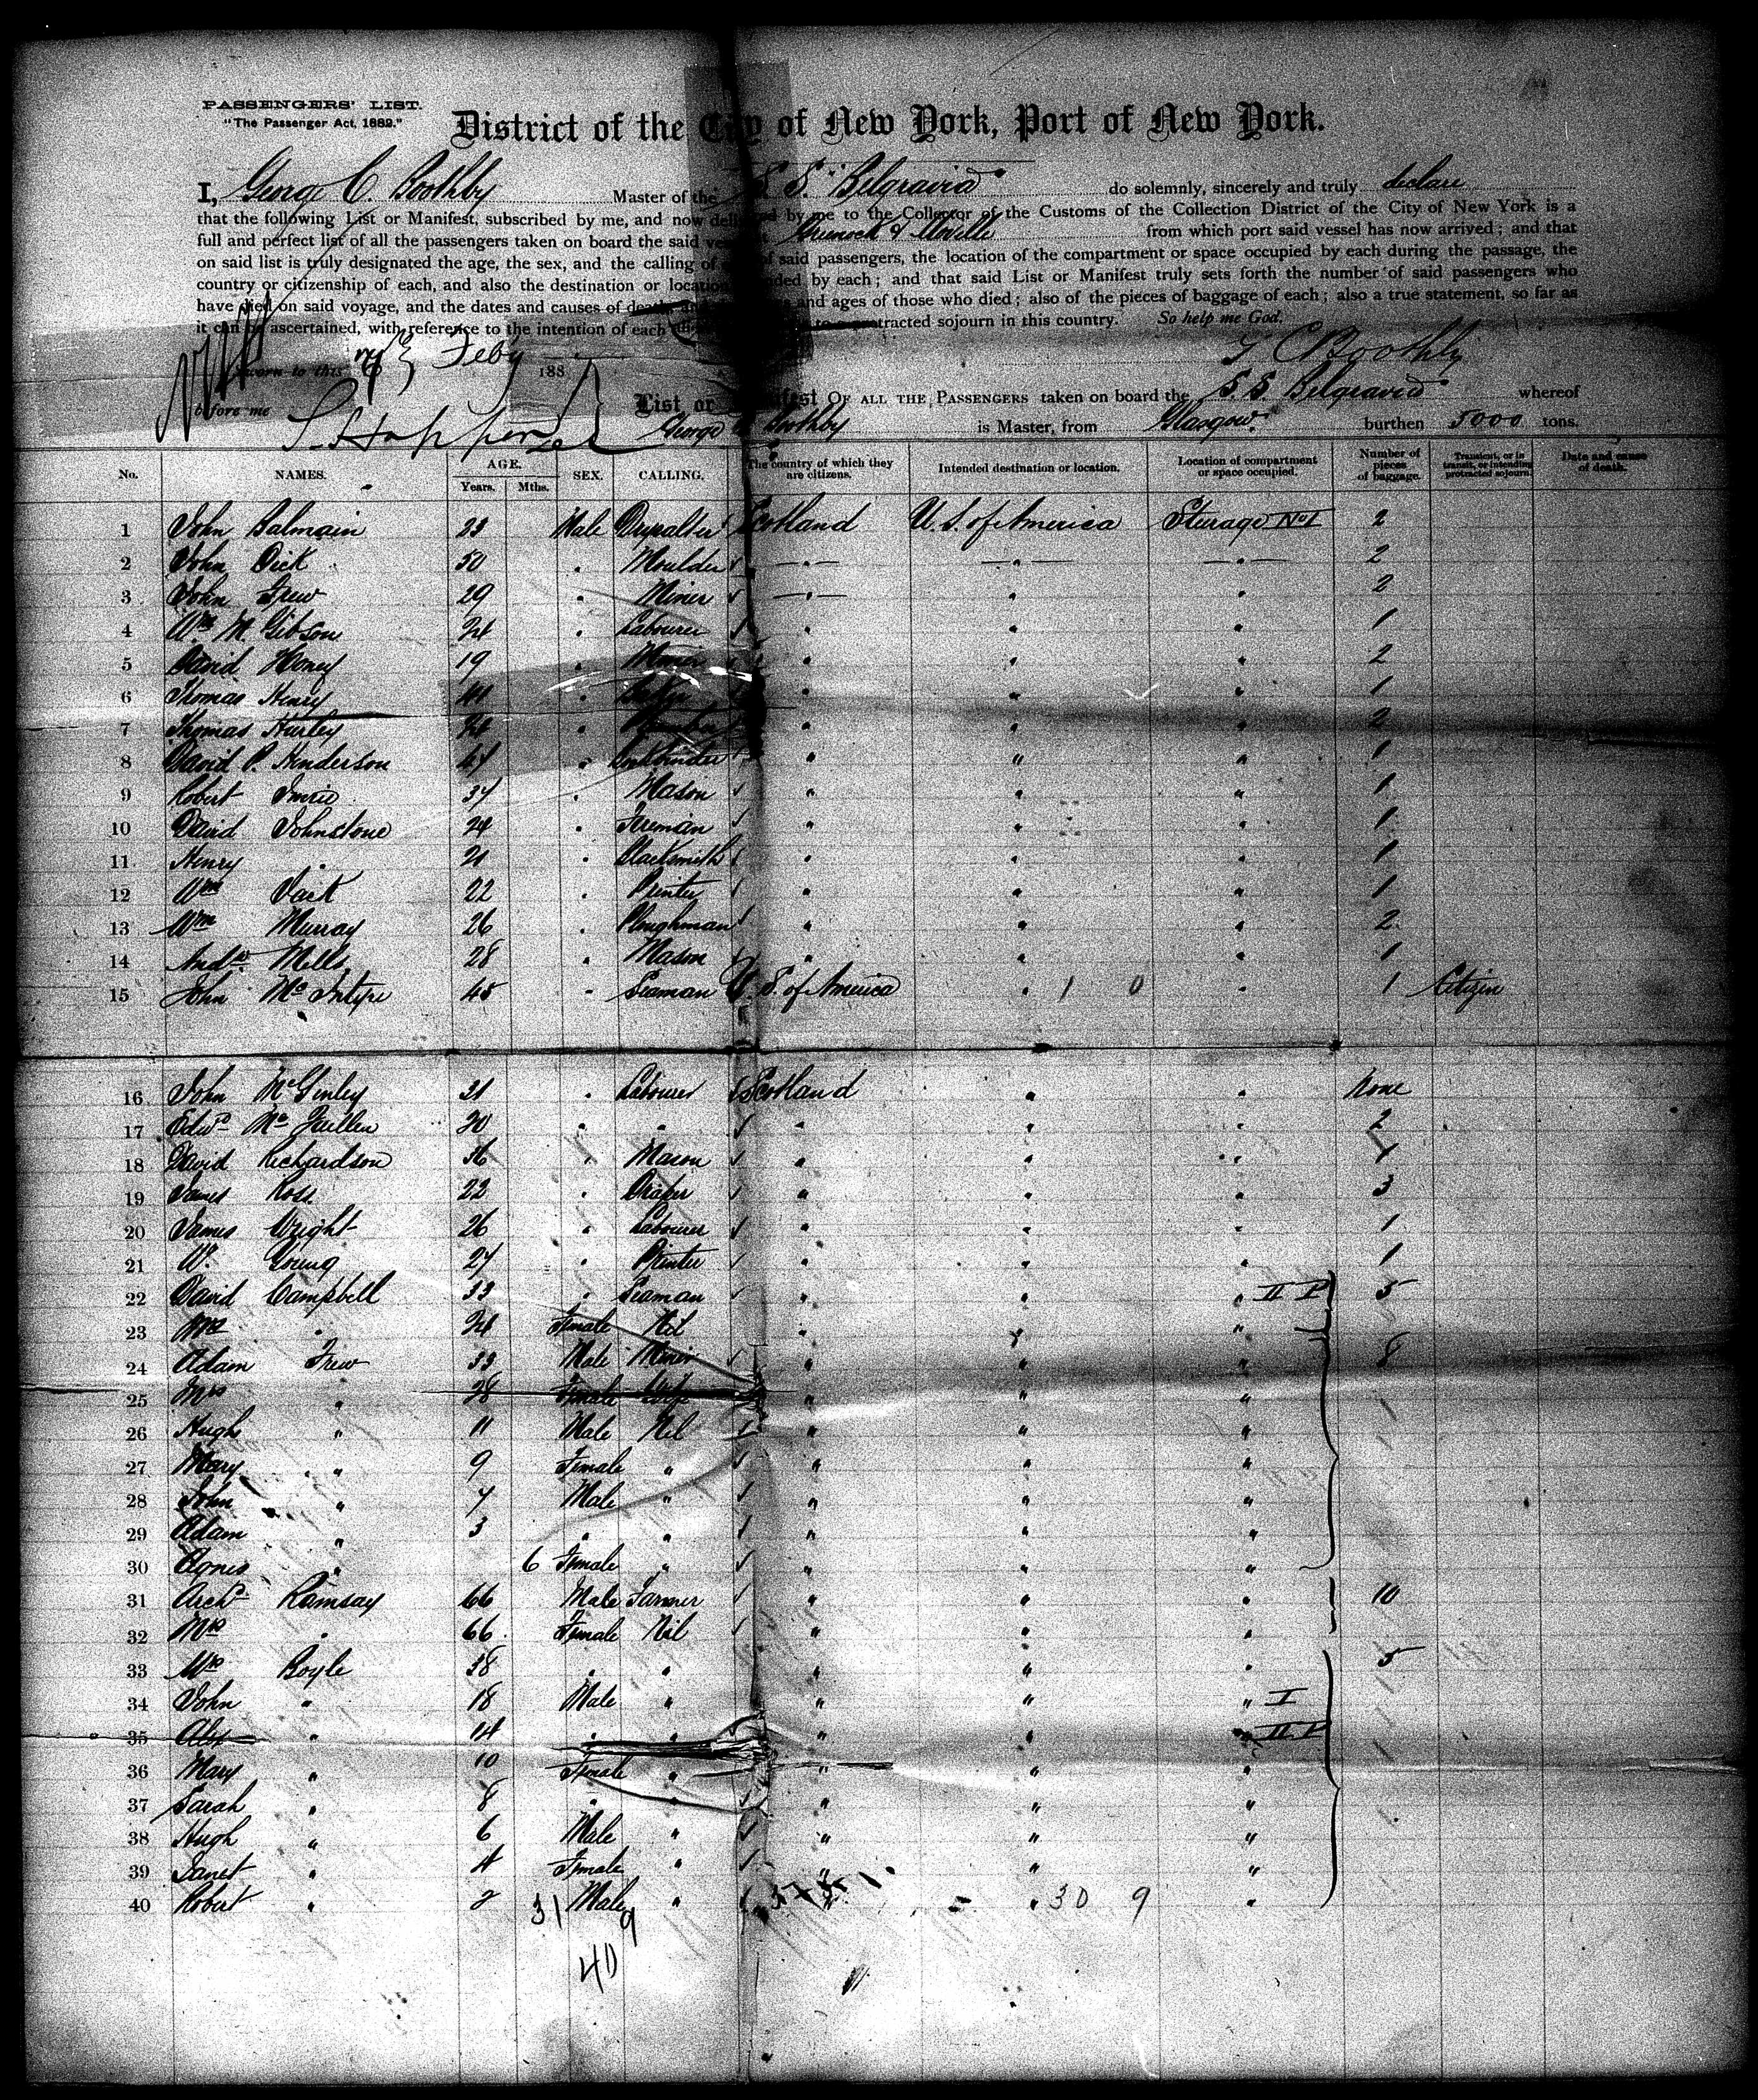 PASSENGERS' LIST.
"The Passenger Act, 1882."
District of the City of New York, Port of New York.
I, George C. Boothby Master of the S.S. "Belgravia" do solemnly, sincerely and truly declare
that the following List or Manifest, subscribed by me, and now delivered by me to the Collector of the Customs of the Collection District of the City of New York is a
full and perfect list of all the passengers taken on board the said Greenock & Moville from which port said vessel has now arrived; and that
on said list is truly designated the age, the sex, and the calling of said passengers, the location of the compartment or space occupied by each during the passage, the
country or citizenship of each, and also the destination or location by each; and that said List or Manifest truly sets forth the number of said passengers who
have died on said voyage, and the dates and causes of death and ages of those who died; also of the pieces of baggage of each; also a true statement, so far as
it can be ascertained, with reference to the intention of each protracted sojourn in this country. So help me God.
Sworn to this Feby 188 Boothby
before me
List or Manifest OF ALL THE PASSENGERS taken on board the S.S. Belgravia whereof
George Boothby is Master, from Glasgow burthen 5000 tons.
No. NAMES. AGE. Years. Mths. SEX. CALLING. The country of which they are citizens. Intended destination or location. Location of compartment or space occupied. Number of pieces of baggage. Transient, or in transit, or intending protracted sojourn. Date and cause of death.
1 John Balmain 23 Male Drysalter Scotland U.S. of America Sterage No 1 2
2 John Dick 50 " Moulder " " " 2
3 John Frew 29 " Miner " " " 2
4 Wm M. Gibson 24 " Labourer " " " 1
5 David Henry 19 " Miner " " " 2
6 Thomas Henry " " " " 1
7 Thomas Hurley " " " " 2
8 David P. Henderson 47 " Bookbinder " " " 1
9 Robert Imrie 34 " Mason " " " 1
10 David Johnstone 24 " Fireman " " " 1
11 Henry " 21 " Blacksmith " " " 1
12 Wm Jack 22 " Printer " " " 1
13 Wm Murray 26 " Ploughman " " " 2
14 Andw Mells 28 " Mason " " " 1
15 John McIntyre 45 " Seaman U.S. of America " 1 0 " 1 Citizen
16 John McGinley 21 " Labourer Scotland " " None
17 Edwd McQuillen 20 " " " " " 2
18 David Richardson 36 " Mason " " " 1
19 James Ross 22 " Draper " " " 3
20 James Wright 26 " Labourer " " " 1
21 W. Young 27 " Printer " " " 1
22 David Campbell 33 " Seaman " " " II P 5
23 Mrs " 24 Female Nil " " "
24 Adam Frew 33 Male Miner " " " 8
25 Mrs " 28 Female Wife " " "
26 Hugh " 11 Male Nil " " "
27 Mary " 9 Female " " " "
28 John " 7 Male " " " "
29 Adam " 3 " " " " "
30 Agnes " 6 Female " " " "
31 Archd Ramsay 66 Male Farmer " " " 10
32 Mrs " 66 Female Nil " " "
33 Mrs Boyle 38 " " " " " 5
34 John " 18 Male " " " " I
35 Alex " 14 " " " " " II P
36 Mary " 10 Female " " " "
37 Sarah " 8 " " " " "
38 Hugh " 6 Male " " " "
39 Janet " 4 Female " " " "
40 Robert " 2 Male " " " "
31 9 30 9
40